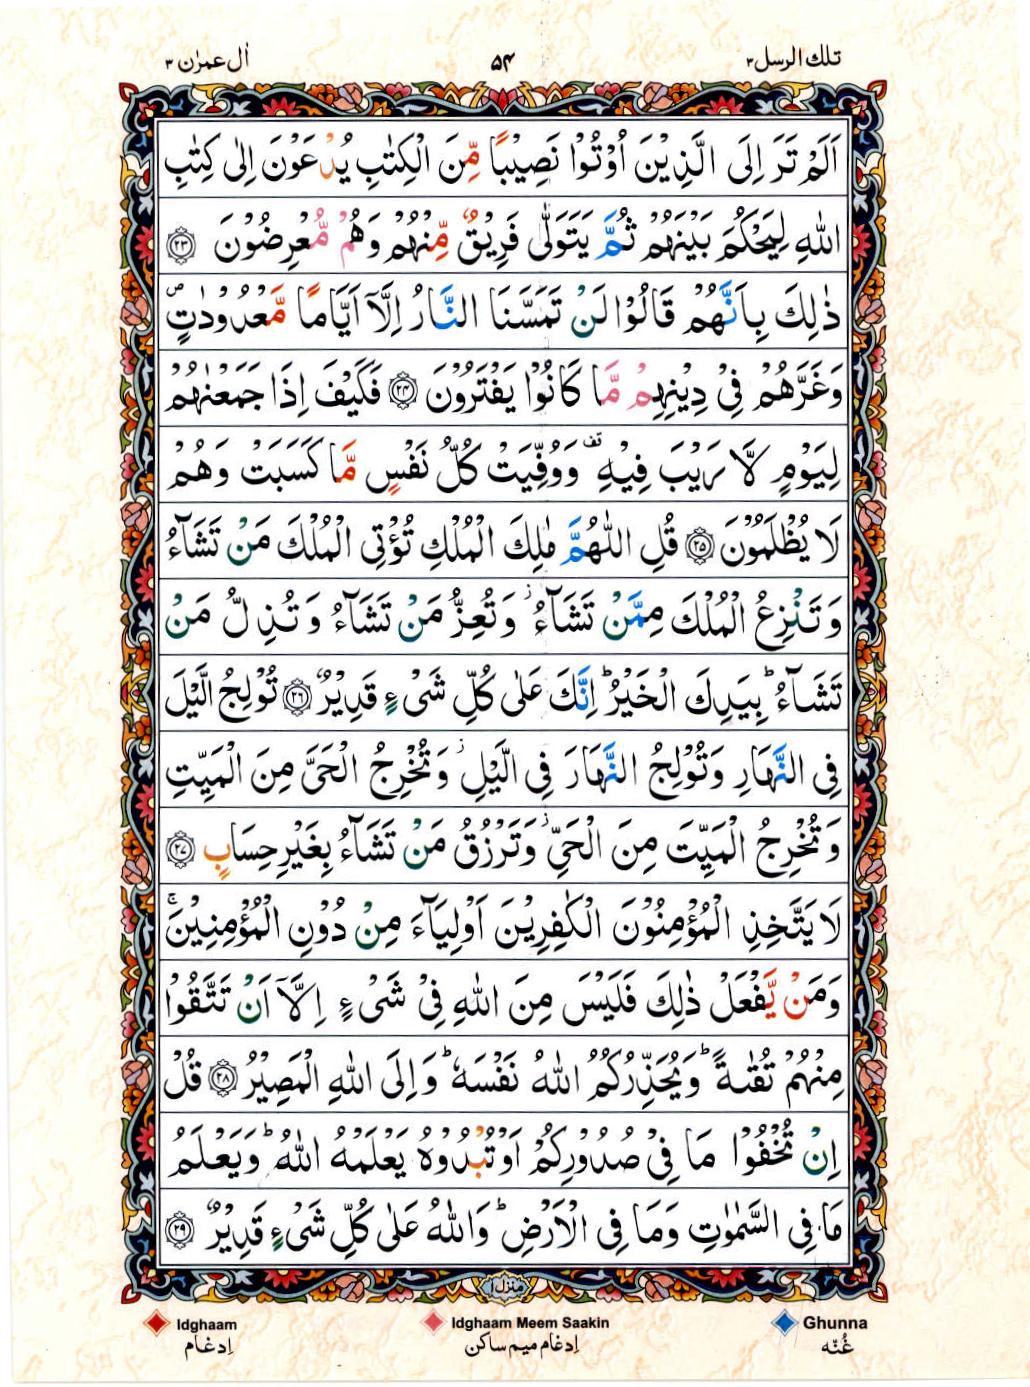 تلك الرسل ٣
۵۴
اٰل عمرٰن ٣
اَلَمْ تَرَ اِلَى الَّذِيْنَ اُوْتُوْا نَصِيْبًا مِّنَ الْكِتٰبِ يُدْعَوْنَ اِلٰى كِتٰبِ
اللّٰهِ لِيَحْكُمَ بَيْنَهُمْ ثُمَّ يَتَوَلّٰى فَرِيْقٌ مِّنْهُمْ وَهُمْ مُّعْرِضُوْنَ ﴿۲۳﴾
ذٰلِكَ بِاَنَّهُمْ قَالُوْا لَنْ تَمَسَّنَا النَّارُ اِلَّاۤ اَيَّامًا مَّعْدُوْدٰتٍ ۪
وَغَرَّهُمْ فِيْ دِيْنِهِمْ مَّا كَانُوْا يَفْتَرُوْنَ ﴿۲۴﴾ فَكَيْفَ اِذَا جَمَعْنٰهُمْ
لِيَوْمٍ لَّا رَيْبَ فِيْهِ قف وَوُفِّيَتْ كُلُّ نَفْسٍ مَّا كَسَبَتْ وَهُمْ
لَا يُظْلَمُوْنَ ﴿۲۵﴾ قُلِ اللّٰهُمَّ مٰلِكَ الْمُلْكِ تُؤْتِى الْمُلْكَ مَنْ تَشَآءُ
وَتَنْزِعُ الْمُلْكَ مِمَّنْ تَشَآءُ ز وَتُعِزُّ مَنْ تَشَآءُ وَتُذِلُّ مَنْ
تَشَآءُ ؕ بِيَدِكَ الْخَيْرُ ؕ اِنَّكَ عَلٰى كُلِّ شَىْءٍ قَدِيْرٌ ﴿۲۶﴾ تُوْلِجُ الَّيْلَ
فِى النَّهَارِ وَتُوْلِجُ النَّهَارَ فِى الَّيْلِ ز وَتُخْرِجُ الْحَىَّ مِنَ الْمَيِّتِ
وَتُخْرِجُ الْمَيِّتَ مِنَ الْحَىِّ ز وَتَرْزُقُ مَنْ تَشَآءُ بِغَيْرِ حِسَابٍ ﴿۲۷﴾
لَا يَتَّخِذِ الْمُؤْمِنُوْنَ الْكٰفِرِيْنَ اَوْلِيَآءَ مِنْ دُوْنِ الْمُؤْمِنِيْنَ ۚ
وَمَنْ يَّفْعَلْ ذٰلِكَ فَلَيْسَ مِنَ اللّٰهِ فِيْ شَىْءٍ اِلَّاۤ اَنْ تَتَّقُوْا
مِنْهُمْ تُقٰىةً ؕ وَيُحَذِّرُكُمُ اللّٰهُ نَفْسَهٗ ؕ وَاِلَى اللّٰهِ الْمَصِيْرُ ﴿۲۸﴾ قُلْ
اِنْ تُخْفُوْا مَا فِيْ صُدُوْرِكُمْ اَوْ تُبْدُوْهُ يَعْلَمْهُ اللّٰهُ ؕ وَيَعْلَمُ
مَا فِى السَّمٰوٰتِ وَمَا فِى الْاَرْضِ ؕ وَاللّٰهُ عَلٰى كُلِّ شَىْءٍ قَدِيْرٌ ﴿۲۹﴾
منزل ۱
Idghaam
اِدغام
Idghaam Meem Saakin
اِدغام میم ساکن
Ghunna
غُنّه